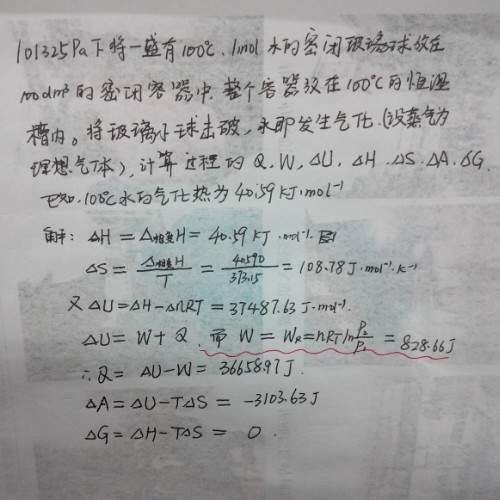 101325Pa下将一盛有100℃、1mol水的密闭玻璃球放在
100dm³的密闭容器中,整个容器放在100℃的恒温
槽内。将玻璃小球击破,水即发生气化(设蒸气为
理想气体),计算过程的Q、W、ΔU、ΔH、ΔS、ΔA、ΔG。
已知:100℃水的气化热为40.59 KJ·mol⁻¹
解: ΔH = Δ相变H = 40.59 KJ·mol⁻¹.
ΔS = Δ相变H/T = 40590/373.15 = 108.78 J·mol⁻¹·K⁻¹
又ΔU=ΔH-ΔnRT = 37487.63 J·mol⁻¹.
ΔU = W+Q. 而 W = W_R = nRT ln P₂/P₁ = 828.66J
∴Q = ΔU-W = 36658.97J.
ΔA = ΔU-TΔS = -3103.63 J
ΔG = ΔH-TΔS = 0.